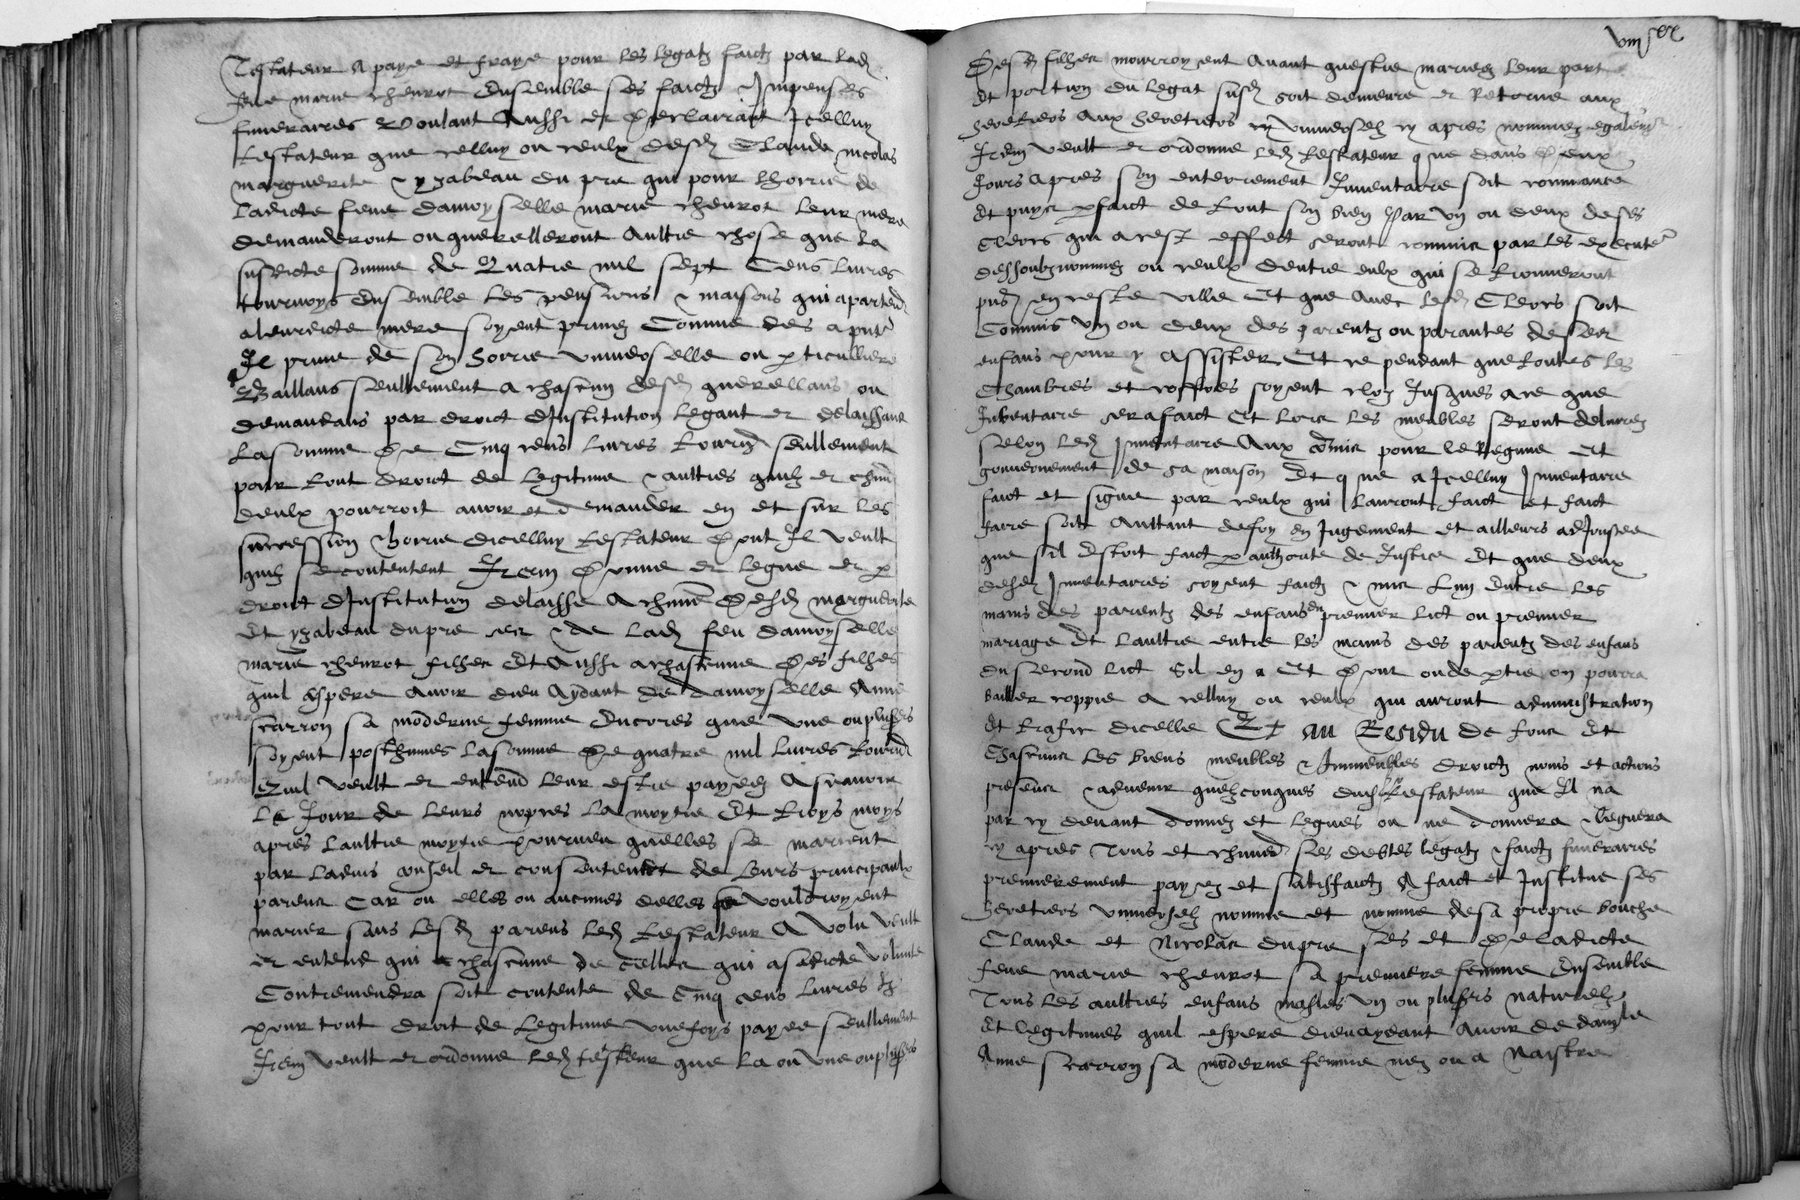 Testateur a paye et fraye pour les legatz faictz par lad
feue marie chenrot ensemble ses faictz & Impenses
funeraires voulant Aussi et declairant Icelluy
testateur que celluy ou ceulx desd Claude nicolas
marguerite & yzabeau du pre qui pour lhoirie de
ladicte feue damoyselle marie chenrot leur mere
demanderont ou querelleront Aultre chose que la
susdicte somme de Quatre mil sept Cens livres
tournoys ensemble les pensions & maisons qui apartend
a leurdicte mere soyent privez Comme des a put
Il prive de son hoirie universelle ou pticulliere
Baillans seullement a chascun desd querellans ou
demandans par droict dInstitution legant et delaissant
La somme de Cinq cens livres tourn seullement
pour tout droict de legitime & aultres quilz et chun
deulx pourroit avoir et demander en et sur les
succession & hoirie dicelluy testateur dont Il veult
quilz se contentent Item donne et legue et p
droict dInstitution delaisse A chune desd marguerite
Et yzabeau dupre ses & de lad feu damoyselle
marie chenrot filhes Et Aussi a chascune des filhes
quil espere avoir dieu Aydant de damoyselle Anne
scarron sa moderne femme Encores que une ou plusrs
soyent posthumes la somme de quatre mil livres tournd
Quil veult et entend leur estre payees Ascavoir
Le Jour de leurs nopces la moytie Et troys moys
apres laultre moytie pourveu quelles se marient
par ladvis conseil et consentement de leurs principaulx
parens Car ou elles ou aucunes delles se vouldroyent
marier sans lesd parens led testateur A volu veult
et entend qui a chascune de celles qui a sadicte volunte
Contreviendra soit contente de Cinq cens livres tz
pour tout droit de legitime unefoys payee seullement
Item veult et ordonne led testateur que la ou une ou plusrs
viii xx
Desd filhes mourroyent Avant questre mariees leur part
Et portion du legat susd soit demeure et Retorne aux
heretiers aux heretiers cy universelz cy apres nommez egalemt
Item veult et ordonne led testateur que dans deux
Jours apres son enterrement Inventaire soit commance
Et puys pfaict de tout son bien par un ou deux deses
Clercs qui a cest effect seront commis par les executers
dessoubznommez ou ceulx dentre eulx qui se trouveront
pnd en ceste ville Et que avec lesd Clercs soit
Commis un ou deux des parentz ou parantes de ses
enfans pour y Assister Et ce pendant que toutes les
Chambres et coffres soyent cloz Jusques a ce que
Inventaire sera faict Et lors les meubles seront delivrez
selon led Inventaire Aux comis pour le Regime Et
gouvernement de sa maison Et que a Icelluy Inventaire
faict et signe par ceulx qui lauront faict et faict
faire soit Aultant de foy en Jugement et ailleurs adjoustee
que sil Estoit faict p authorite de Justice Et que deux
desd Inventaires soyent faictz & mis lun Entre les
mains des parentz des enfans du premier lict ou premier
mariage Et laultre entre les mains des parentz des enfans
du second lict sil en a Et dont ou de ptie on pourra
bailler coppie a celluy ou ceulx qui auront administration
Et trafic dicelle Et au Residu de tous Et
Chascuns les biens meubles & Immeubles droictz noms et actions
presens & advenir quelzconques dudt testateur que Il na
par cy devant donnez et leguez ou ne donnera & leguera
cy apres Tous et chuned ses debtes legatz & faictz funeraires
premierement payez et satisfaictz A faict et Institue ses
heretiers universelz nomme et nomme de sa propre bouche
Claude et Nicolas dupre ses et de ladicte
feue marie chenrot sa premiere femme Ensemble
Tous les aultres enfans masles un ou plusrs naturelz
Et legitimes quil espere dieu aydant Avoir de damlle
Anne scarron sa moderne femme nez ou a Naistre